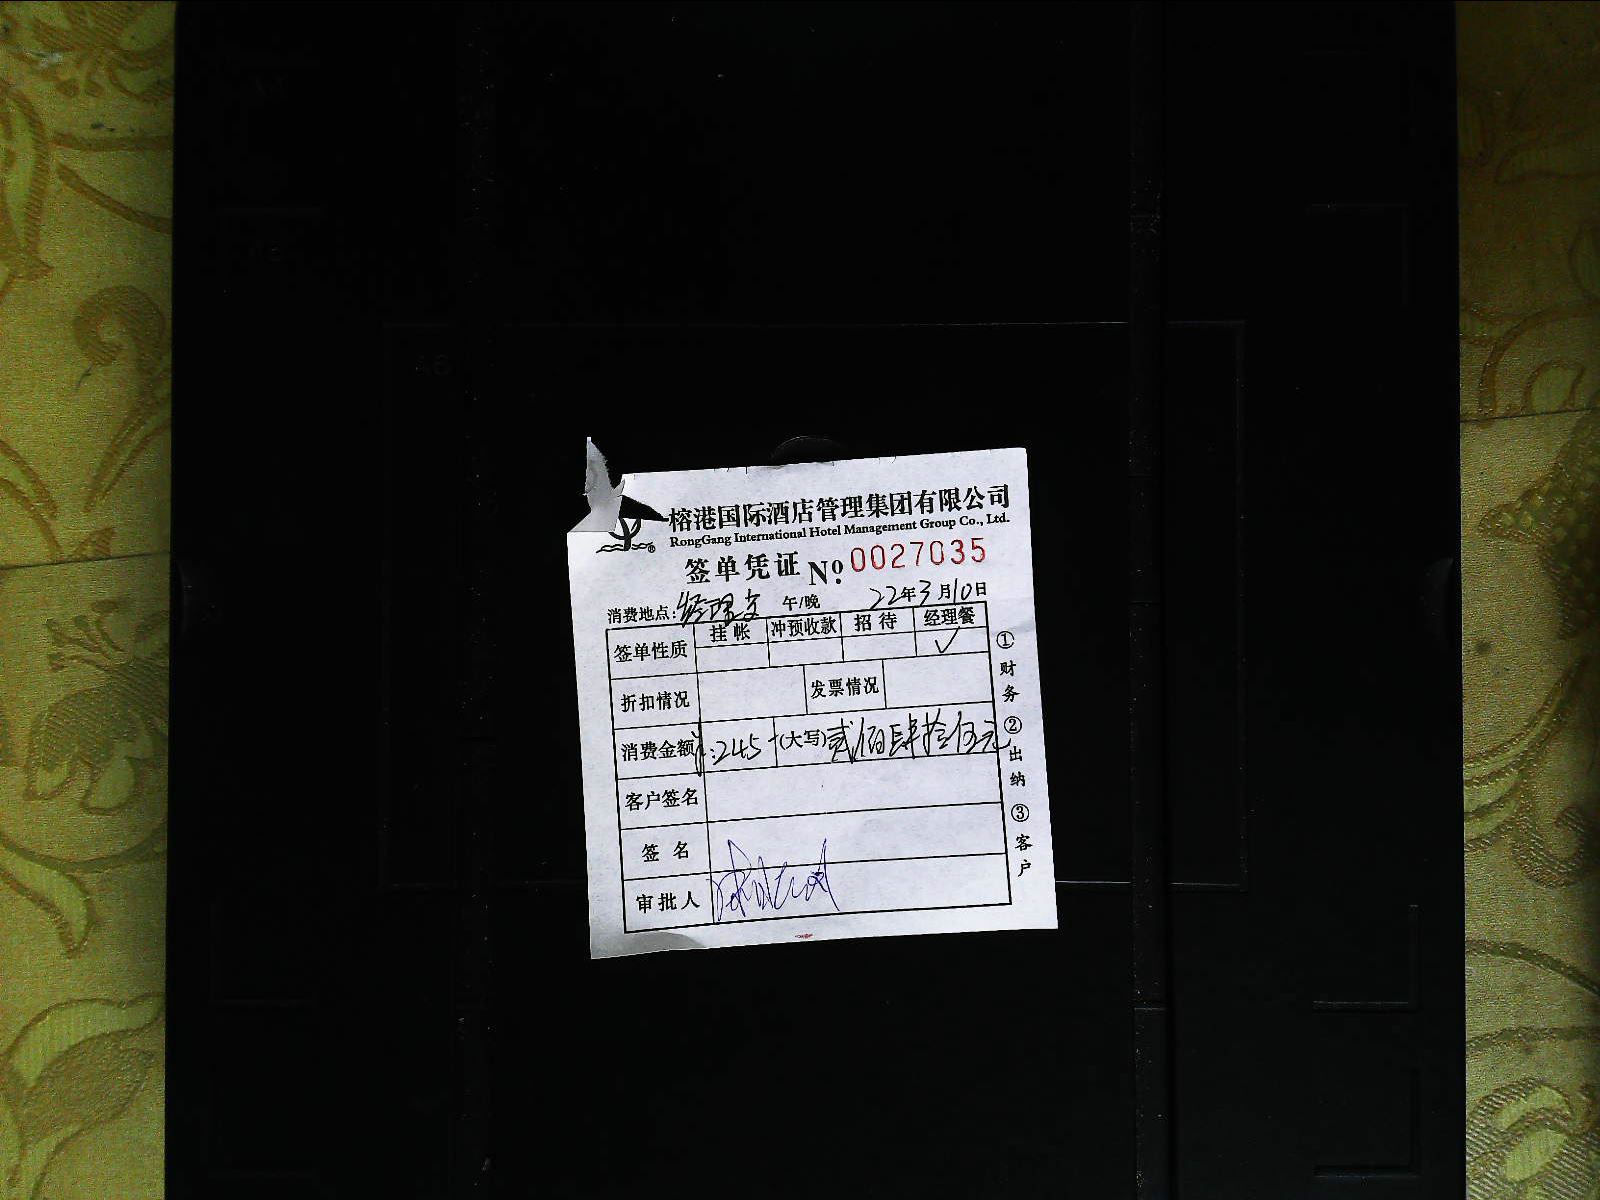 榕港国际酒店管理集团有限公司
RongGang International Hotel Management Group Co., Ltd.
签单凭证 No. 0027035
消费地点: 经理 午/晚 22年3月10日
签单性质 挂帐 冲预收款 招待 经理餐
✓
折扣情况 发票情况
消费金额 ¥:245 (大写) 贰佰肆拾伍元
客户签名
签名
审批人
①财务 ②出纳 ③客户
A6